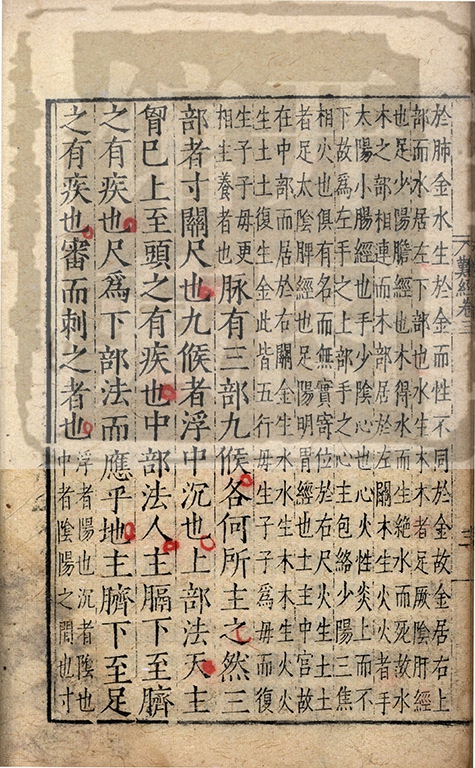 難經卷三
三
於肺金水生於金而性不同於金故金居右上
部而水居左下部也水生木木者足厥陰肝經
也足少陽膽經也木得水而生絶水而死故水
木之部相連而木部居於左關木生火火者手
太陽小腸經也手少陰心也心火性炎上而不
下故爲左手之上部手之心主包絡少陽三焦
相火也俱有名而無實寄位於右尺火生土土
者足太陰脾經也足陽明胃經也土主中宮故
在中部而居於右關金生水水生木木生火火
生土土復生金此皆五行毋生子子爲毋而復
生子子毋更
相生養者也
脉有三部九候各何所主之然三
部者寸關尺也九候者浮中沉也上部法天主
胷巳上至頭之有疾也中部法人主膈下至臍
之有疾也尺爲下部法而應乎地主臍下至足
之有疾也審而刺之者也
浮者陽也沉者陰也
中者陰陽之間也寸